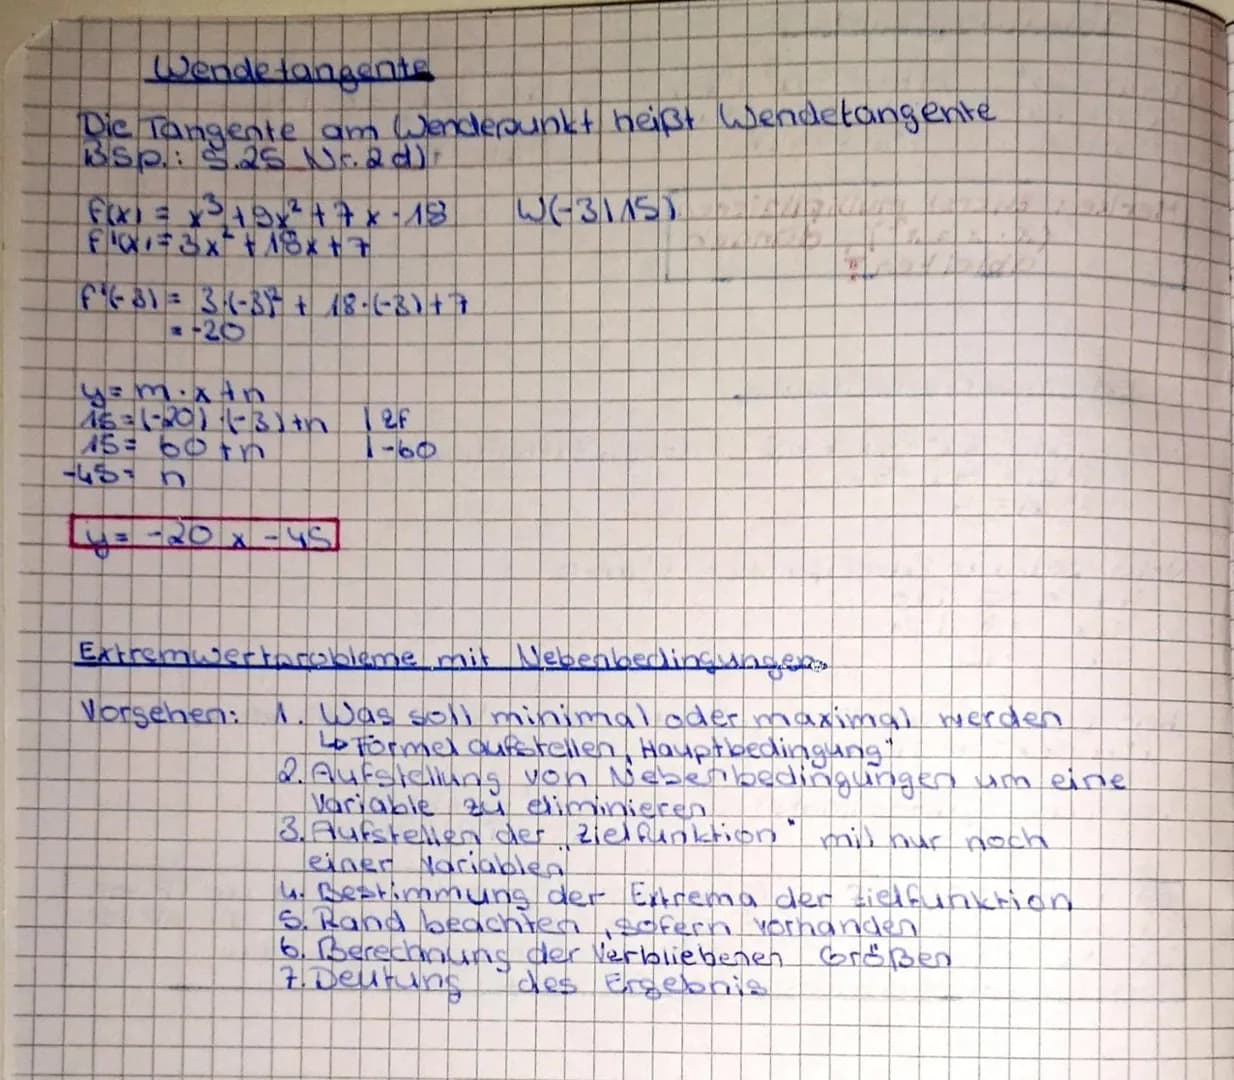 Wendetangente
Die Tangente am Wendepunkt heißt Wendetangente
Bsp.: S.25 Nr. 2 d)
f(x) = x³ + 9x² + 7x - 18 W(-3|15)
f'(x) = 3x² + 18x + 7
f'(-3) = 3·(-3)² + 18·(-3) + 7
= -20
y = m·x + n
15 = (-20)·(-3) + n | zf
15 = 60 + n | -60
-45 = n
y = -20x - 45
Extremwertprobleme mit Nebenbedingungen
Vorgehen: 1. Was soll minimal oder maximal werden
↳ Formel aufstellen „Hauptbedingung"
2. Aufstellung von Nebenbedingungen um eine
Variable zu eliminieren
3. Aufstellen der „Zielfunktion" mit nur noch
einer Variablen
4. Bestimmung der Extrema der Zielfunktion
5. Rand beachten, sofern vorhanden
6. Berechnung der Verbliebenen Größen
7. Deutung des Ergebnis